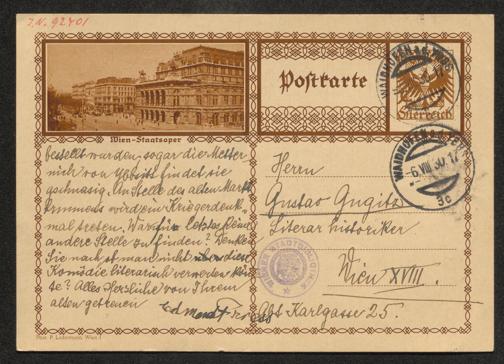 J.N. 92401
Postkarte
WAIDHOFEN A. D. YBBS
Österreich
Wien-Staatsoper
WAIDHOFEN A. D. YBBS
-6.VIII.30.17
3c
bestellt wurden, sogar die Metter
nich von Ybbsitz findet sie
geschmassig. An Stelle des alten Markt
brunnens wird ein Kriegerdenk
mal treten. War für letztes keine
andere Stelle zu finden? Denken
Sie nach ob man nicht diese
Komödie literarisch verwerten könn
te? Alles Herzliche von Ihrem
alten getreuen
Edmund Friess
Herrn
Gustav Gugitz
Literarhistoriker
Wien XVIII.
Abt Karlgasse 25.
WIENER STADTBIBLIOTHEK